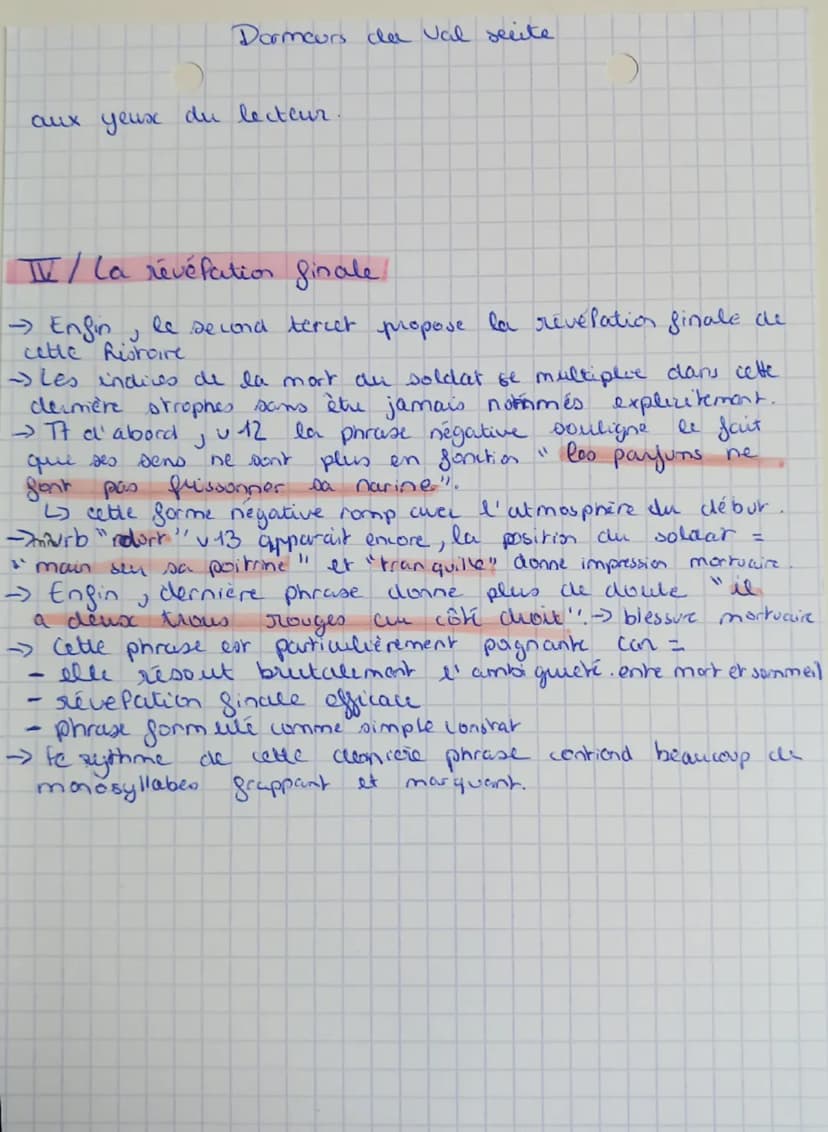 Dormeurs du Val suite
aux yeux du lecteur.
IV/ La révélation finale
→ Enfin, le second tercet propose la révélation finale de
cette histoire
→ Les indices de la mort du soldat se multiplie dans cette
dernière strophes sans être jamais nommés explicitement.
→ Tt d'abord, v 12 la phrase négative souligne le fait
que ses sens ne sont plus en fonction "les parfums ne
font pas frissonner sa narine".
↳ cette forme négative romp avec l'atmosphère du début.
→ "dort" v 13 apparait encore, la position du soldat =
"main sur sa poitrine" et "tranquille" donne impression mortuaire.
→ Enfin, dernière phrase donne plus de doute "il
a deux trous rouges au côté droit". → blessure mortuaire
→ Cette phrase est particulièrement poignante car =
- elle résout brutalement l'ambiguïté entre mort et sommeil
- révélation finale efficace
- phrase formulé comme simple constat
→ Le rythme de cette dernière phrase contiend beaucoup de
monosyllabes frappant et marquant.